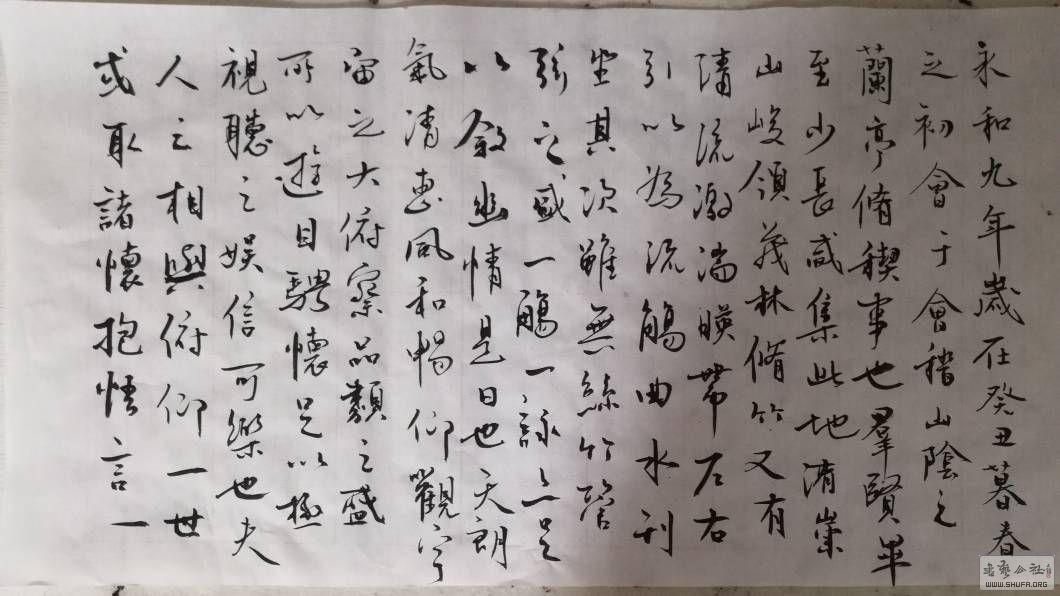 永和九年歲在癸丑暮春
之初會于會稽山陰之
蘭亭脩稧事也羣賢畢
至少長咸集此地崇
山峻領茂林脩竹又有
清流激湍暎帶左右
引以為流觴曲水列
坐其次雖無絲竹管
弦之盛一觴一詠亦足
以敘幽情是日也天朗
氣清惠風和暢仰觀宇
宙之大俯察品類之盛
所以遊目騁懷足以極
視聽之娛信可樂也夫
人之相與俯仰一世
或取諸懷抱悟言一
WWW.SHUFA.ORG